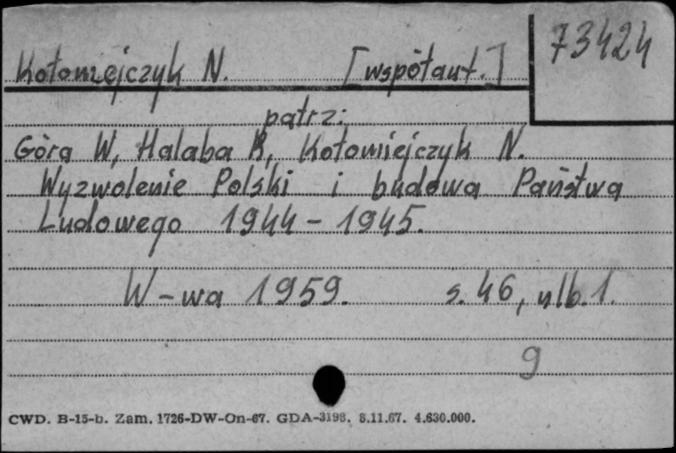 73424
Kołomiejczyk N. [współaut.]
patrz:
Góra W, Halaba R, Kołomiejczyk N.
Wyzwolenie Polski i budowa Państwa
Ludowego 1944 - 1945.
W-wa 1959. s. 46, nlb. 1.
9
CWD. B-15-b. Zam. 1726-DW-On-67. GDA-3198. 8.11.67. 4.630.000.